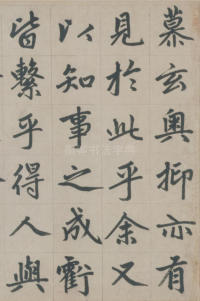 慕玄奧抑亦有
見於此乎余又
以知事之成虧
皆繫乎得人與